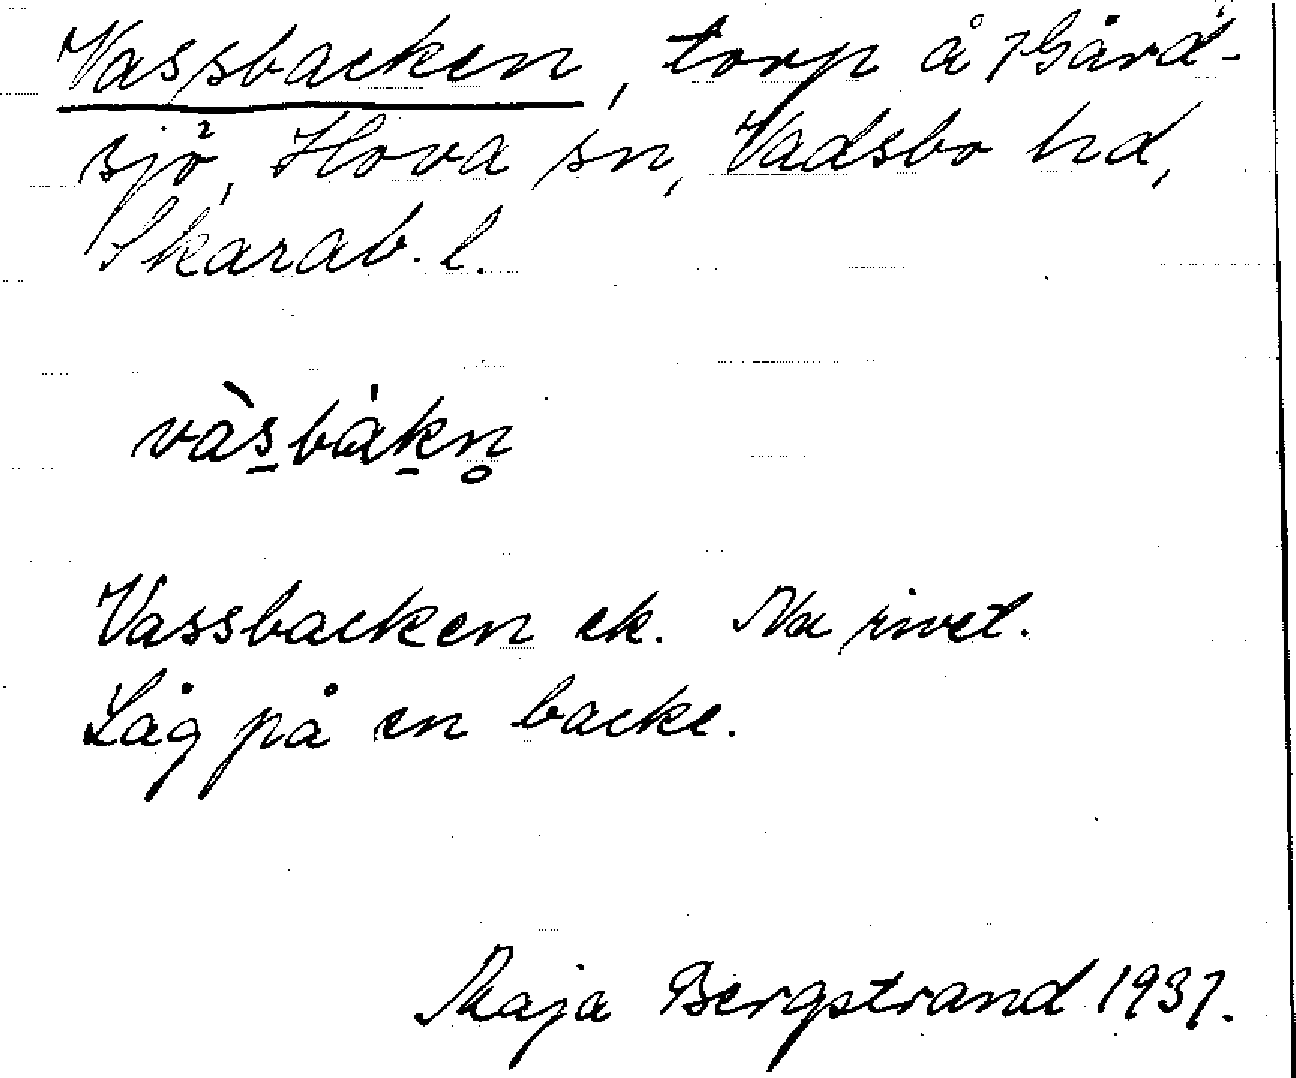 Vassbacken, torp å Gård-
sjö, Hova sn, Vadsbo hd,
Skarab. l.
vàs̲bák̲n̥
Vassbacken ek. Nu rivet.
Låg på en backe.
Maja Bergstrand 1937.